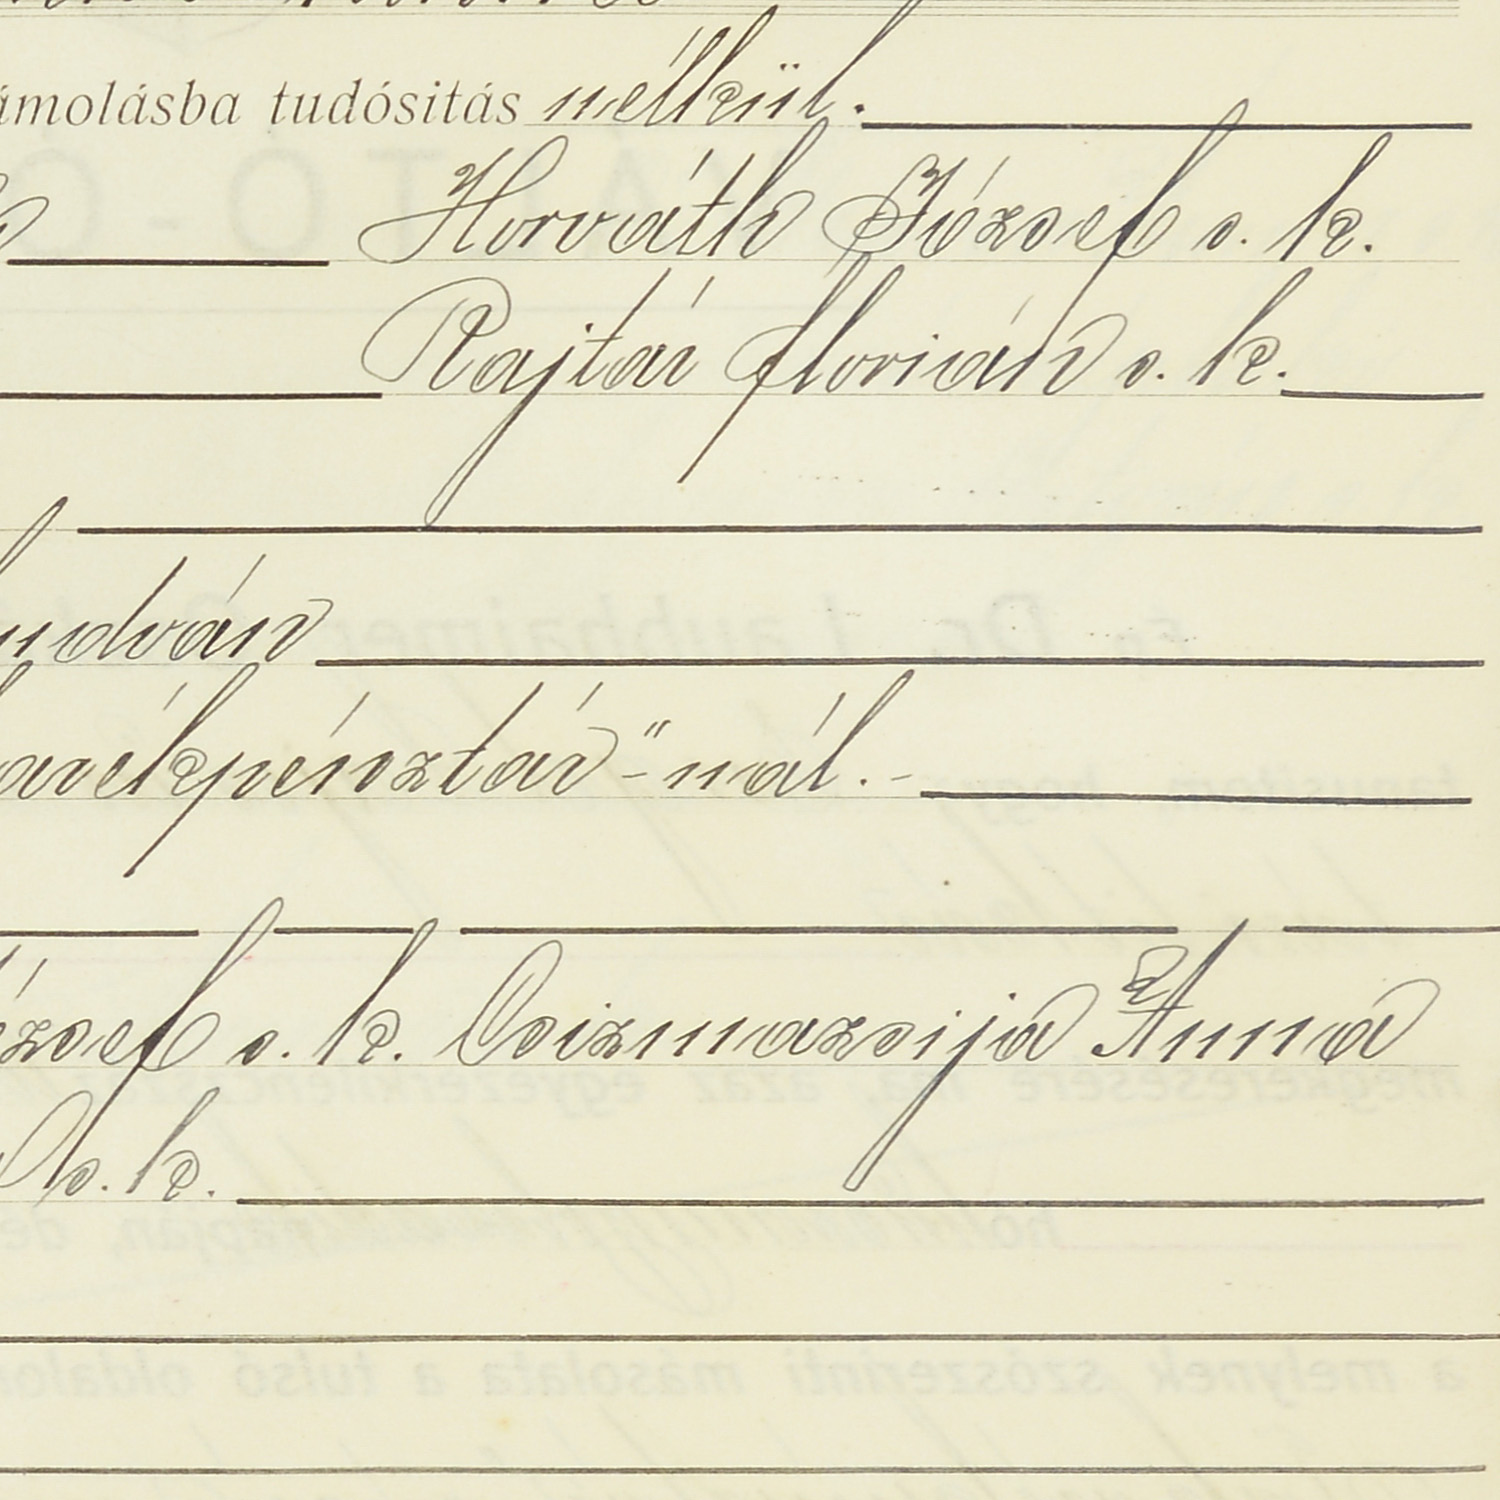 ámolásba tudósitás nélkül.
Horváth József s. k.
Rajtár flórián s. k.
udvár
arékpénztár"-nál.-
ózsef s. k. Csizmazsija Anna
s. k.